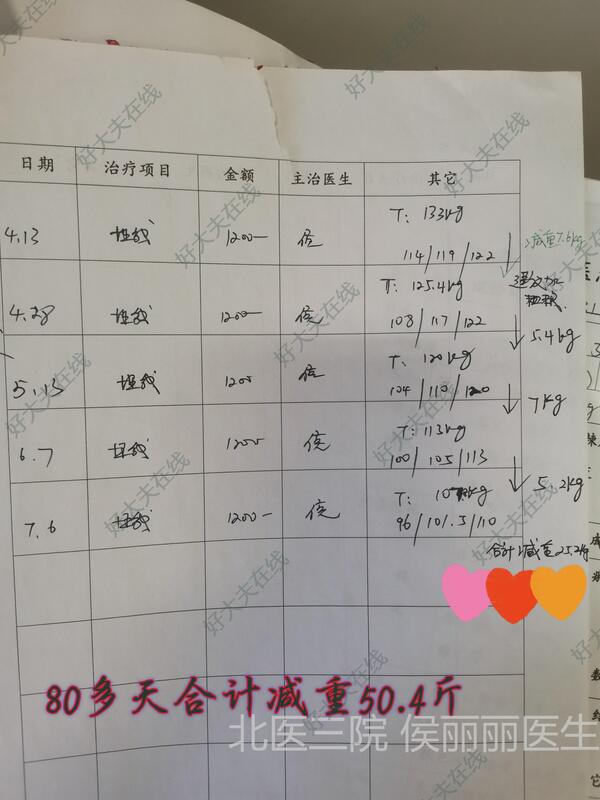 日期 治疗项目 金额 主治医生 其它
4.13 埋线 1200- 侯 T: 133kg
114/119/122
减重7.6kg
4.28 埋线 1200- 侯 T: 125.4kg
108/117/122
5.4kg
5.13 埋线 1200 侯 T: 120kg
104/110/120
7kg
6.7 埋线 1200 侯 T: 113kg
100/105/113
5.2kg
7.6 埋线 1200- 侯 T:
96/101.5/110
合计减重25.2kg
80多天合计减重50.4斤
北医三院 侯丽丽医生
好大夫在线